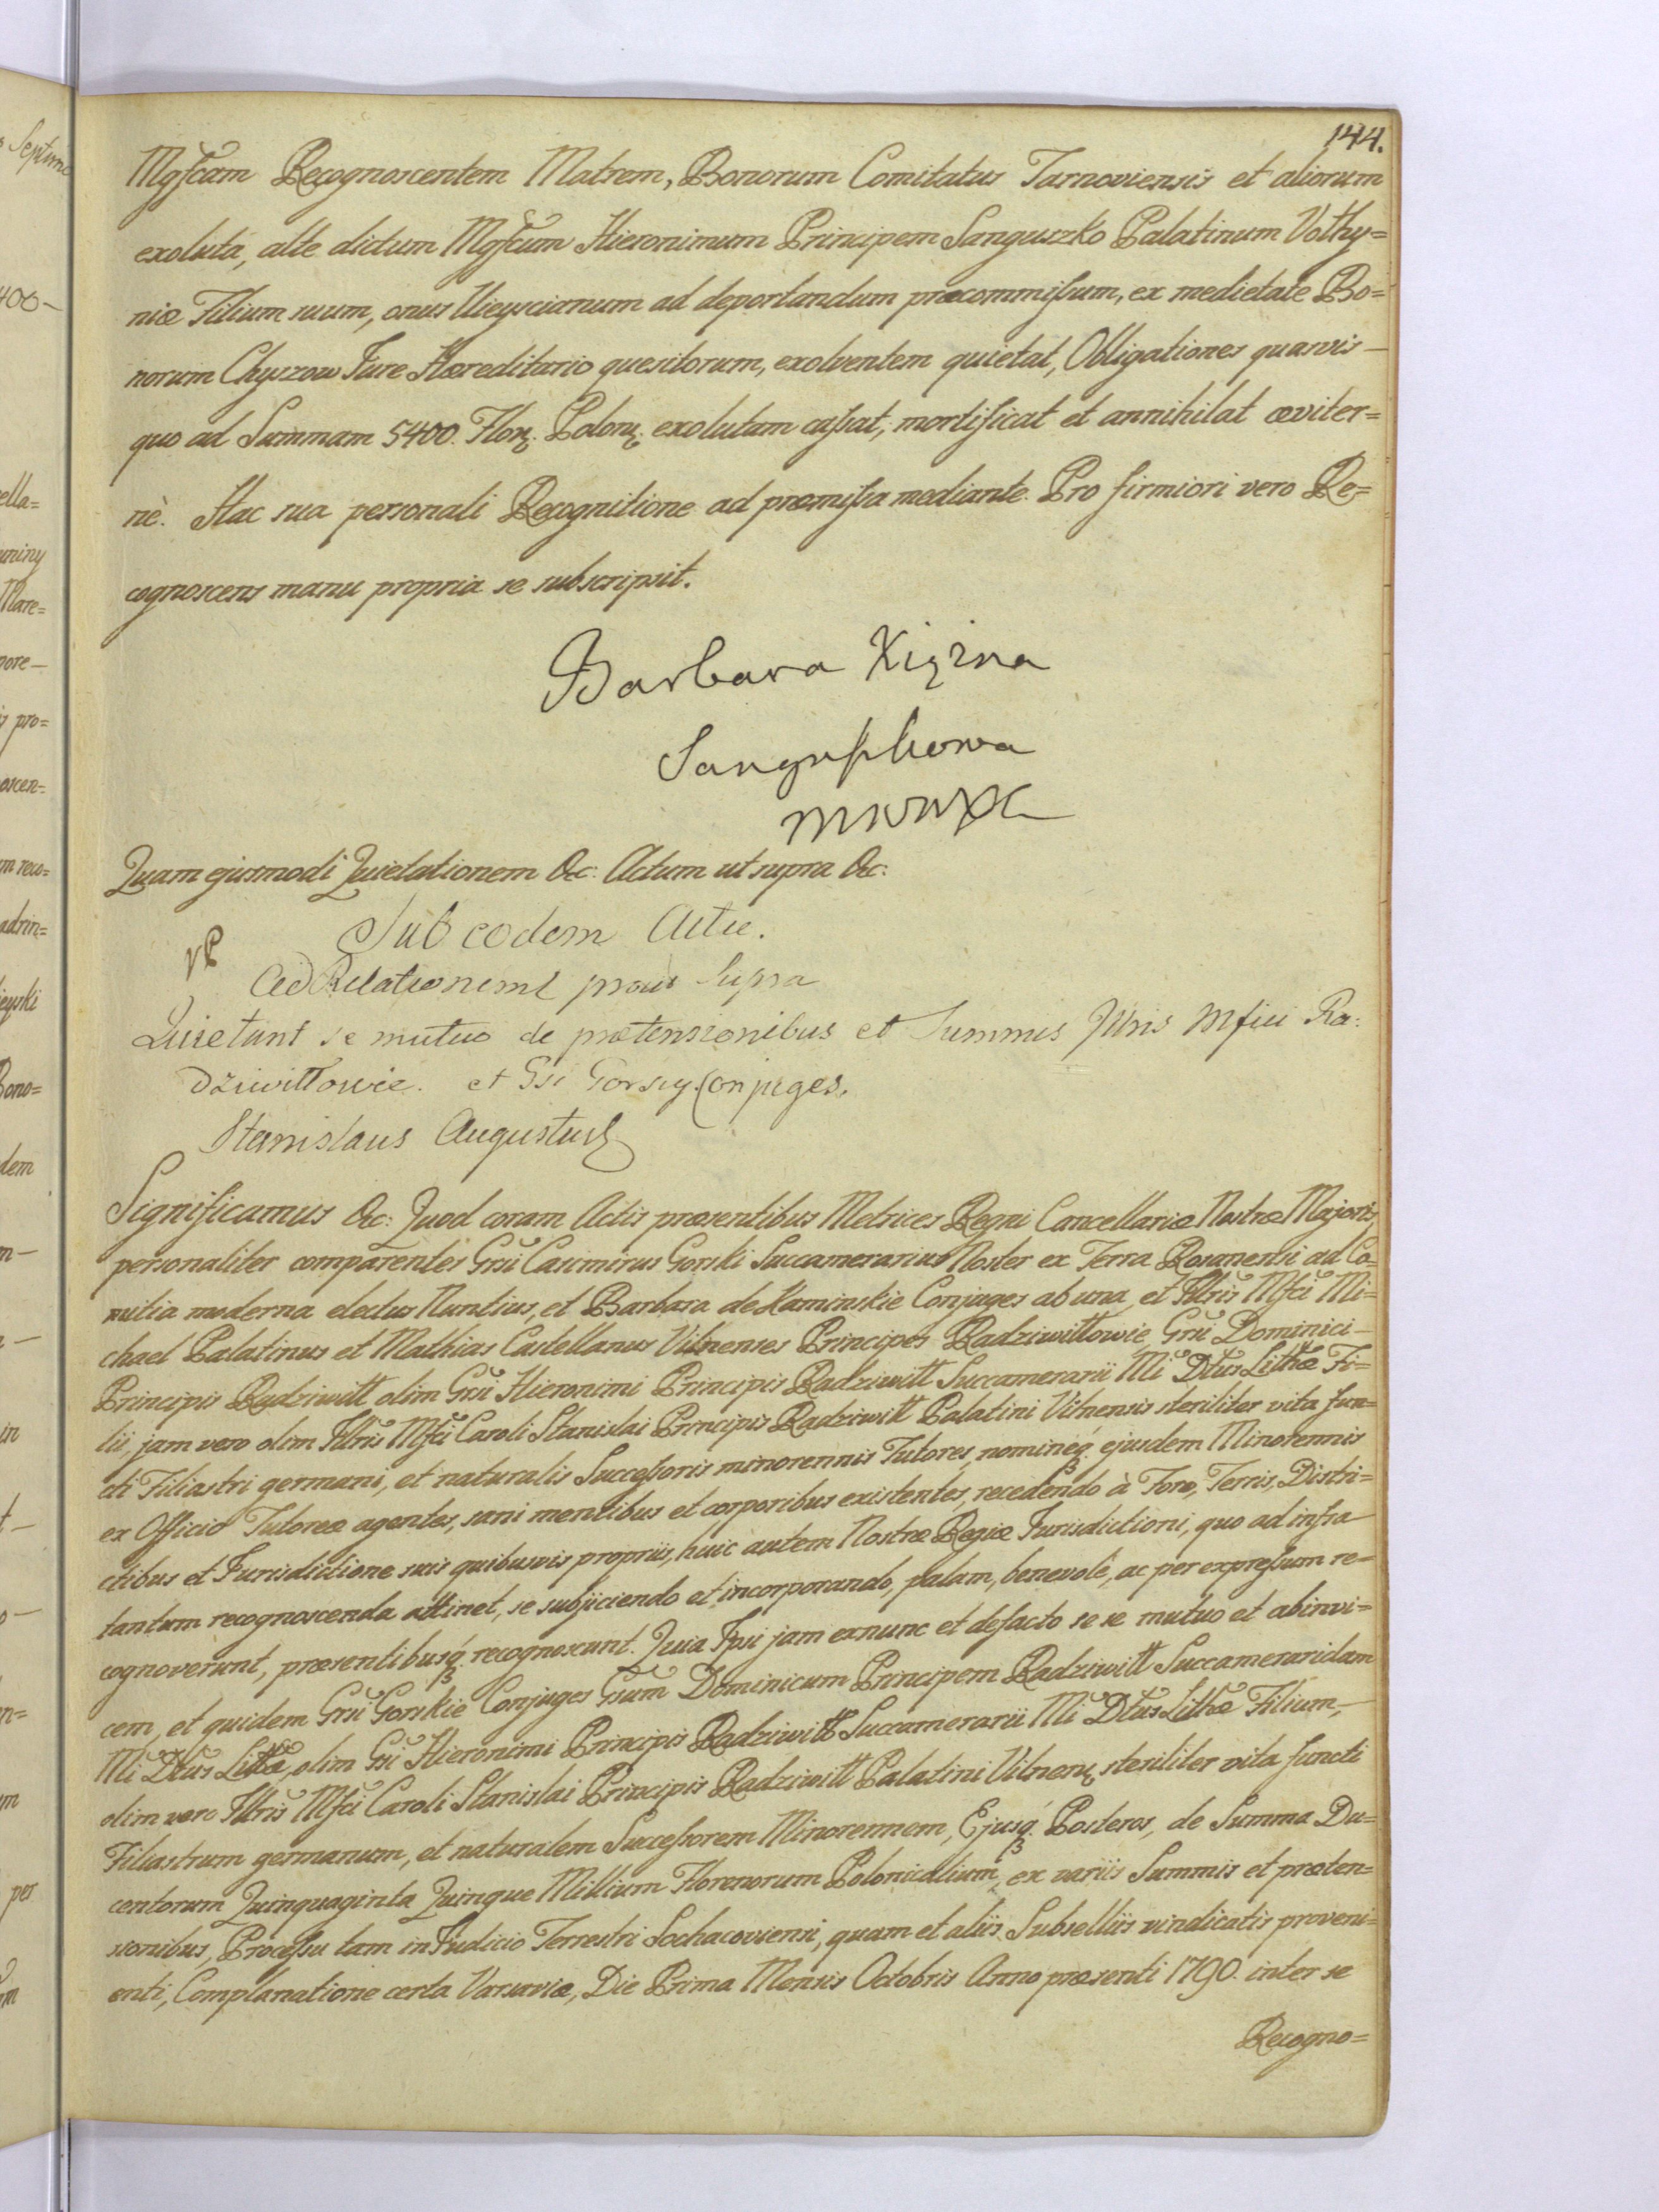 144.
Mgfcam Recognoscentem Matrem, Bonorum Comitatus Tarnoviensis et aliorum
exoluta, alte dictum Mgfcum Hieronimum Principem Sanguszko Palatinum Volhy=
niæ Filium suum, onus Uieyscianum ad deportandum præcommissum, ex medietate Bo=
norum Chyszow Jure Hæreditario quesitorum, exolventem quietat, Obligationes quasvis —
quo ad Summam 5400. Flor. Polon. exolutam cassat, mortificat et annihilat æviter=
nè. Hac sua personali Recognitione ad præmissa mediante. Pro firmiori vero Re=
cognoscens manu propria se subscripsit.
Barbara Xiężna
Sanguszkowa
Quam ejusmodi Quietationem &c. Actum ut supra &c.
Sub eodem Actu.
Ad Relationem prout Supra
Quietant se mutuo de prætensionibus et Summis Jllris Mfici Ra:
dziwiłłowie. et Gsi Gorscy Conjuges.
Stanislaus Augustus
Significamus &c. Quod coram Actis præsentibus Metrices Regni Cancellariæ Nostræ Majoris,
personaliter comparentes Grsi Casimirus Gorski Succamerarius Noster ex Terra Rosanensi ad Co=
mitia moderna electus Nuntius, et Barbara de Kaminskie Conjuges ab una, et Jllris Mfci Mi=
chael Palatinus et Mathias Castellanus Vilnenses Principes Radziwiłłowie, Grsi Dominici —
Principis Radziwiłł olim Grsi Hieronimi Principis Radziwiłł Succamerarii Mi Dtus Lithæ Fi=
lii, jam vero olim Jllris Mfci Caroli Stanislai Principis Radziwiłł Palatini Vilnensis steriliter vita fun=
cti Filiastri germani, et naturalis Successoris minorennis Tutores, nomineq. ejusdem Minorennis
ex Officio Tutoreo agentes, sani mentibus et corporibus existentes, recedendo à Foro, Terris, Distri=
ctibus et Jurisdictione suis quibusvis propriis, huic autem Nostræ Regiæ Jurisdictioni, quo ad infra
tantum recognoscenda attinet, se subjiciendo et incorporando, palam, benevole, ac per expressum re=
cognoverunt, præsentibusq. recognoscunt. Quia Ipsi jam exnunc et defacto se se mutuo et abinvi=
cem, et quidem Grsi Gorskie Conjuges Gsum Dominicum Principem Radziwiłł Succameraridam
Mi Dtus Lithæ, olim Gsi Hieronimi Principis Radziwiłł Succamerarii Mi Dtus Lithæ Filium, —
olim vero Jllris Mfci Caroli Stanislai Principis Radziwiłł Palatini Vilnens. steriliter vita functi
Filiastrum germanum, et naturalem Successorem Minorennem, Ejusq. Posteros, de Summa Du=
centorum Quinquaginta Quinque Millium Florenorum Polonicalium, ex variis Summis et præten=
sionibus, Processu tam in Judicio Terrestri Sochacoviensi, quam et aliis Subselliis vindicatis proveni=
enti, Complanatione certa Varsaviæ, Die Prima Mensis Octobris Anno præsenti 1790. inter se
Recogno=